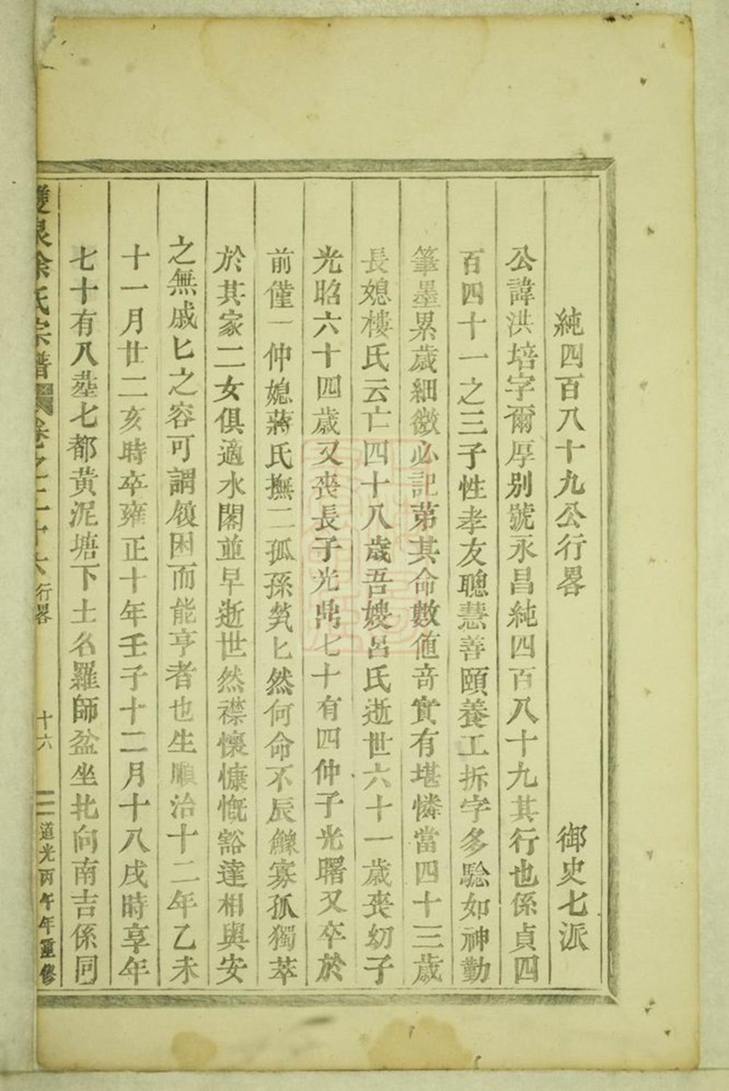 純四百八十九公行畧 御史七派
公諱洪培字爾厚别號永昌純四百八十九其行也係貞四
百四十一之三子性孝友聰慧善頤養工拆字多驗如神勤
筆墨累歲細微必記苐其命數值竒實有堪憐當四十三歲
長媳樓氏云亡四十八歲吾嫂呂氏逝世六十一歲喪幼子
光昭六十四歲又喪長子光鼎七十有四仲子光曙又卒於
前僅一仲媳蔣氏撫二孤孫煢匕然何命不辰鰥寡孤獨萃
於其家二女俱適水閣並早逝世然襟懷慷慨豁達相與安
之無戚匕之容可謂履困而能亨者也生順治十二年乙未
十一月廿二亥時卒雍正十年壬子十二月十八戌時享年
七十有八塟七都黃泥塘下土名羅師盆坐北向南吉係同
雙泉徐氏宗譜 卷之二十六 行畧 十六 道光丙午年重修